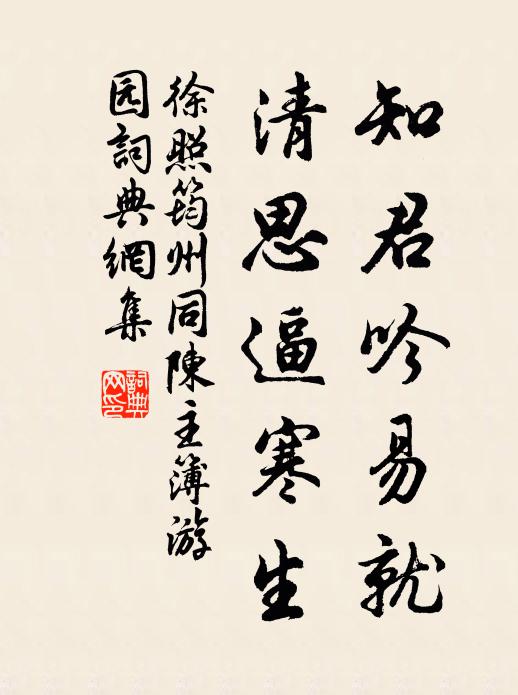 知君吟易就
清思逼寒生
徐照筠州同陳主簿游
园詞典網集
詞典网印